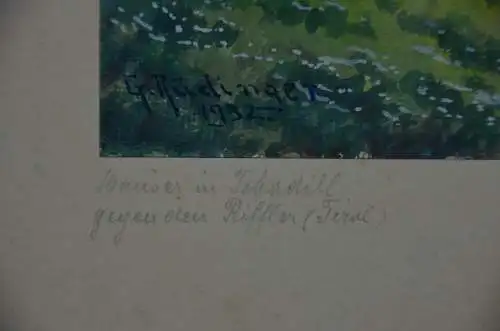 G. Rüdinger
1932
Häuser in Tobadill
gegen den Riffler (Tirol)